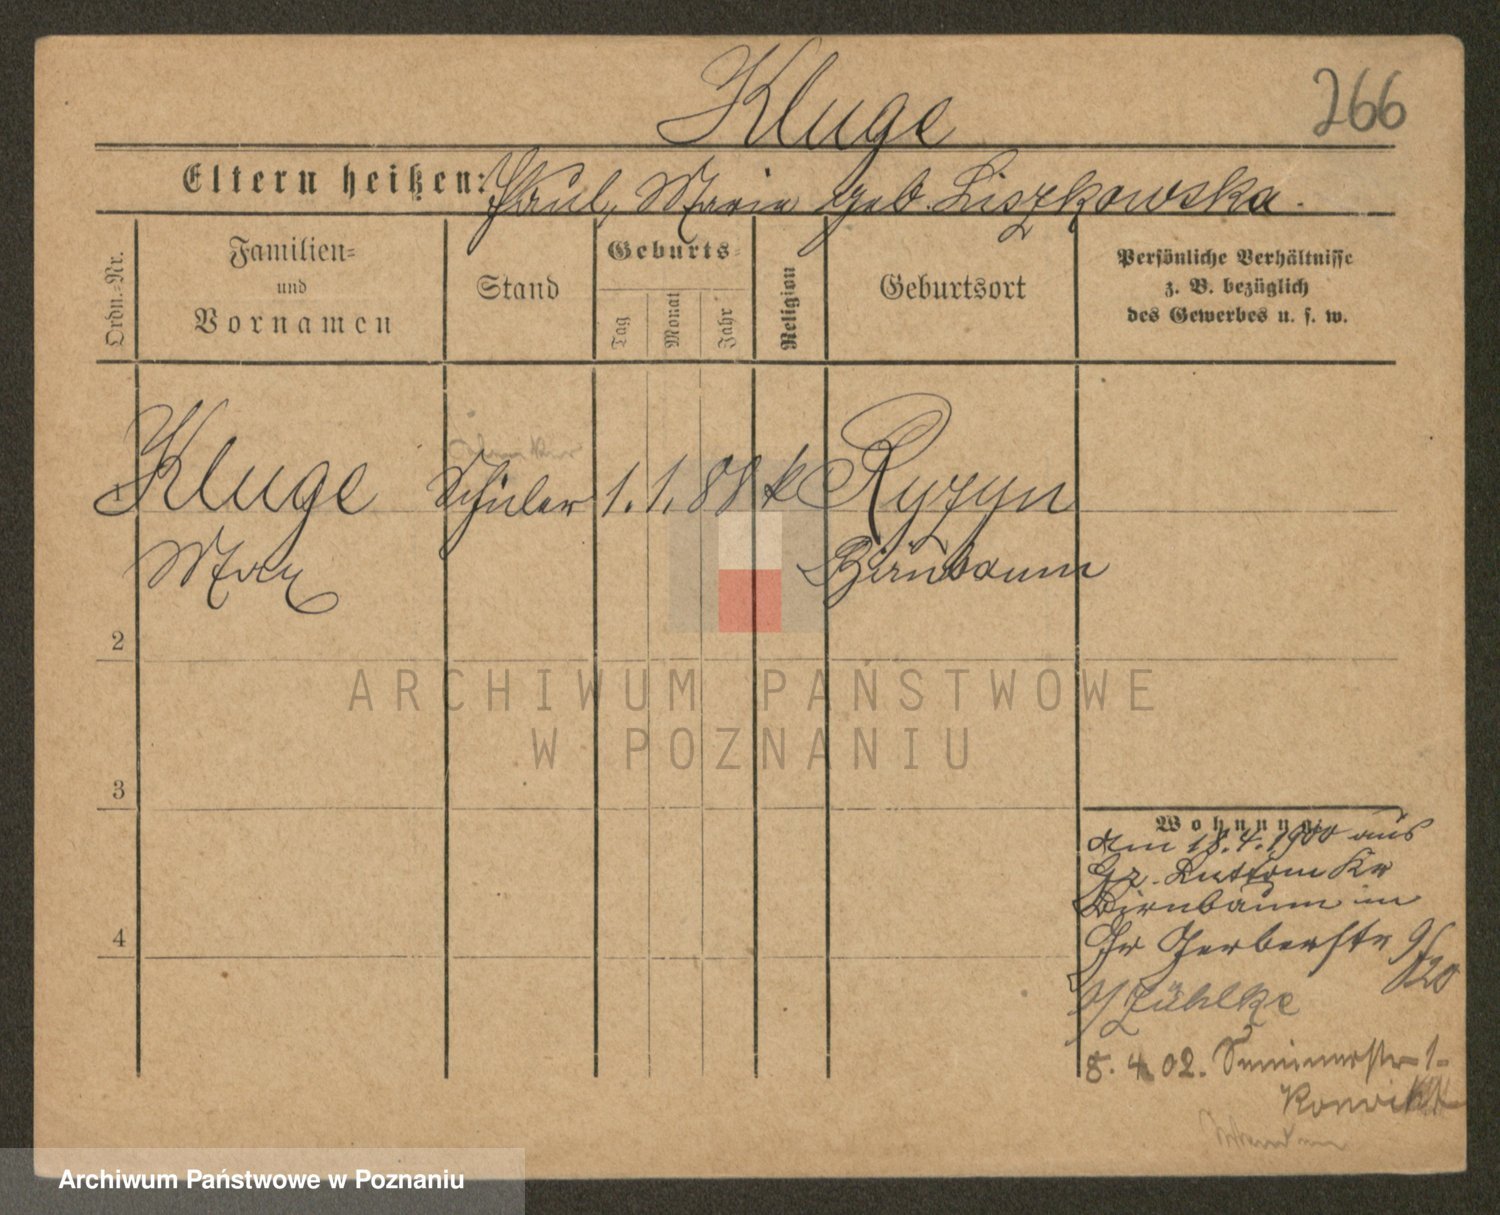 Kluge
266
Eltern heißen: Paul, Maria geb. Liszkowska.
Ordn.-Nr.
Familien-
und
Vornamen
Stand
Geburts-
Tag
Monat
Jahr
Religion
Geburtsort
Persönliche Verhältnisse
z. B. bezüglich
des Gewerbes u. s. w.
Kluge Schüler 1. 1. 88 k Ryzyn
Max Birnbaum
2
3
4
Wohnung
Am 18.4.1900 aus
Gr. Luttom Kr
Birnbaum in
Gr Gerberstr 9/20
b/ Zühlke
8. 4. 02. Seminarstr 1
Konvikt
ARCHIWUM PAŃSTWOWE
W POZNANIU
Archiwum Państwowe w Poznaniu